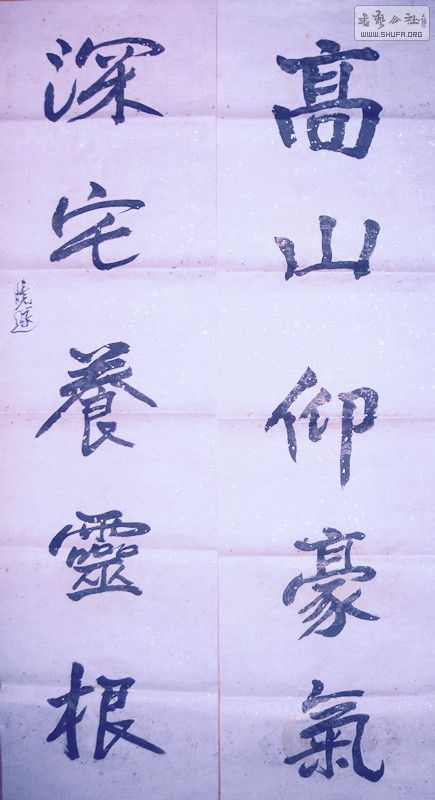 高山仰豪氣
深宅養靈根
書藝公社
WWW.SHUFA.ORG